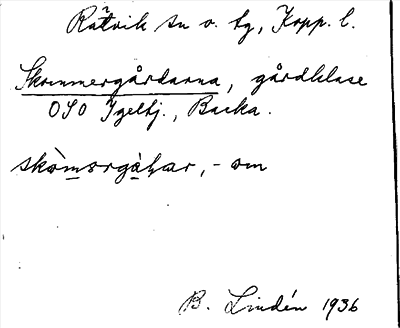 Rättvik sn o. tg, Kopp. l.
Skommergårdarna, gårdklase
OSO Igeltj., Backa.
skòmərgàḷar, - om
B. Lindén 1936